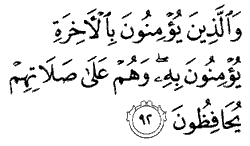 وَٱلَّذِينَ يُؤۡمِنُونَ بِٱلۡأٓخِرَةِ
يُؤۡمِنُونَ بِهِۦۖ وَهُمۡ عَلَىٰ صَلَاتِهِمۡ
يُحَافِظُونَ ٩٢